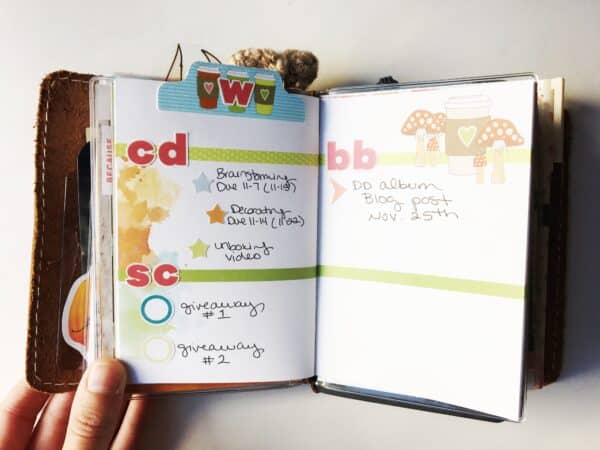 W
BECAUSE
cd
Brainstorming
Due 11-7 (11-15)
Decorating
Due 11-14 (11-22)
unboxing
video
sc
giveaway
# 1
giveaway
# 2
bb
DD album
Blog post
Nov. 25th